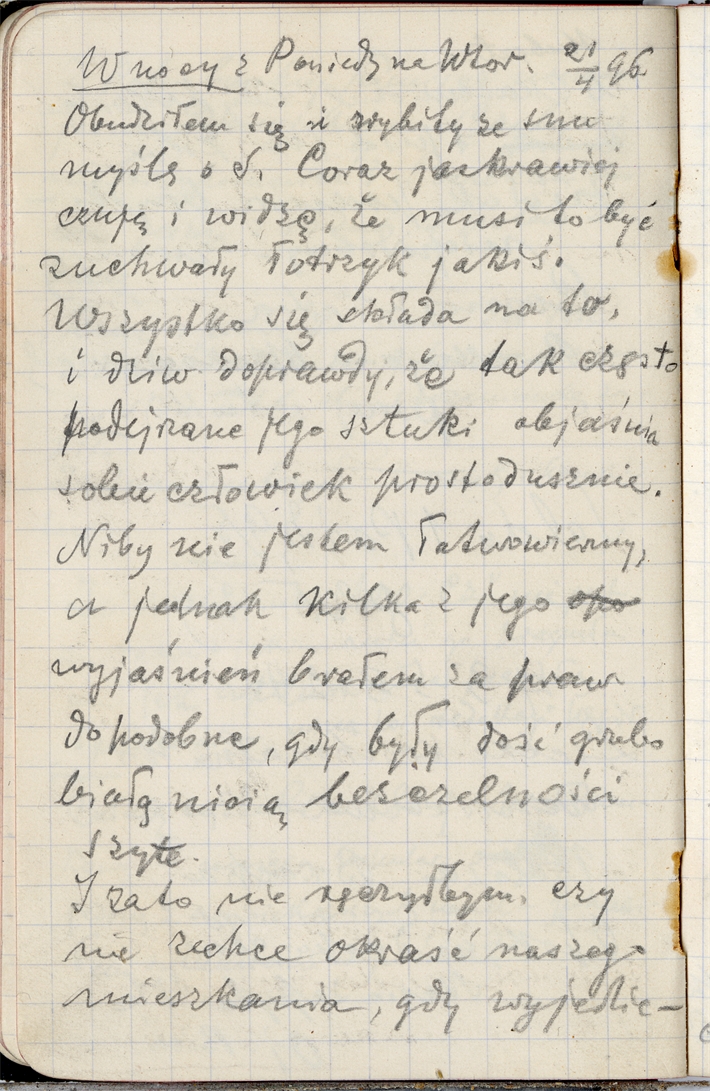 W nocy z Poniedz na Wtor. 21/4 96
Obudziłem się i wybity ze snu
myślę o S. Coraz jaskrawiej
czuję i widzę, że musi to być
zuchwały łotrzyk jakiś.
Wszystko się składa na to,
i dziw doprawdy, że tak często
podejrzane jego sztuki objaśnia
sobie człowiek prostodusznie.
Niby nie jestem łatwowierny,
a jednak kilka z jego opo
wyjaśnień brałem za praw
dopodobne, gdy były dość grubo
białą nicią bezczelności
szyte.
I za to nie ręczyłbym, czy
nie zechce okraść naszego
mieszkania, gdy wyjedzie–